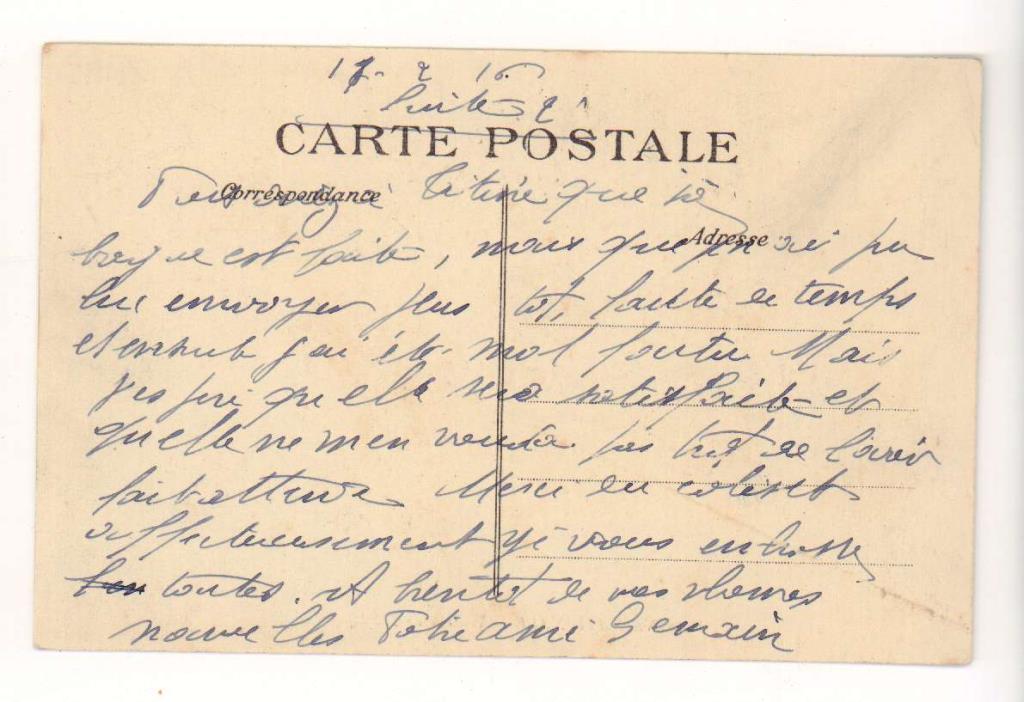 17-2 16
Suite 2
CARTE POSTALE
Correspondance
Titine que sa
Adresse
bague est faite, mais que je n'ai pu
lui envoyer plus tôt, faute de temps
et ensuite j'ai été mal foutu Mais
j'espère qu'elle sera satisfaite et
qu'elle ne m'en voudra pas trop de l'avoir
fait attendre Merci du colis et
affectueusement je vous embrasse
toutes. A bientôt de vos bonnes
nouvelles Votre ami Germain